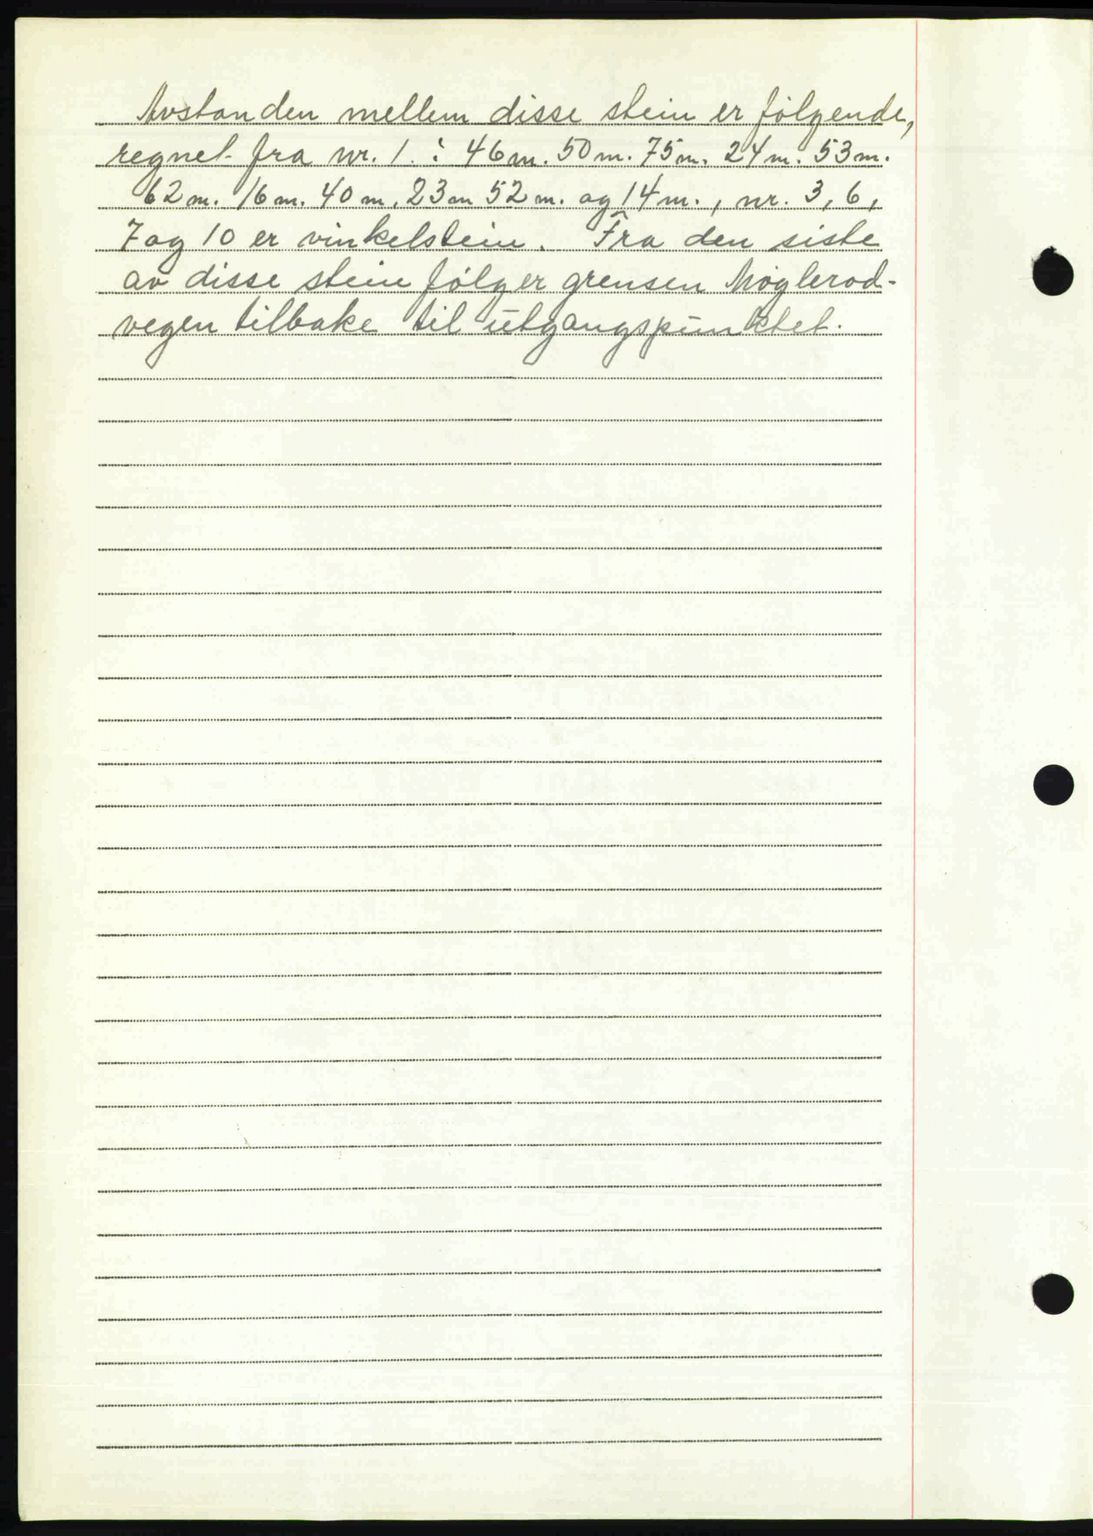 Avstanden mellem disse stein er følgende,
regnet fra nr. 1. : 46m. 50m. 75m. 24m. 53m.
62m. 16m. 40m. 23m 52m. og 14m., nr. 3, 6,
7 og 10 er vinkelstein. Fra den siste
av disse stein følger grensen Møglerød-
vegen tilbake til utgangspunktet.